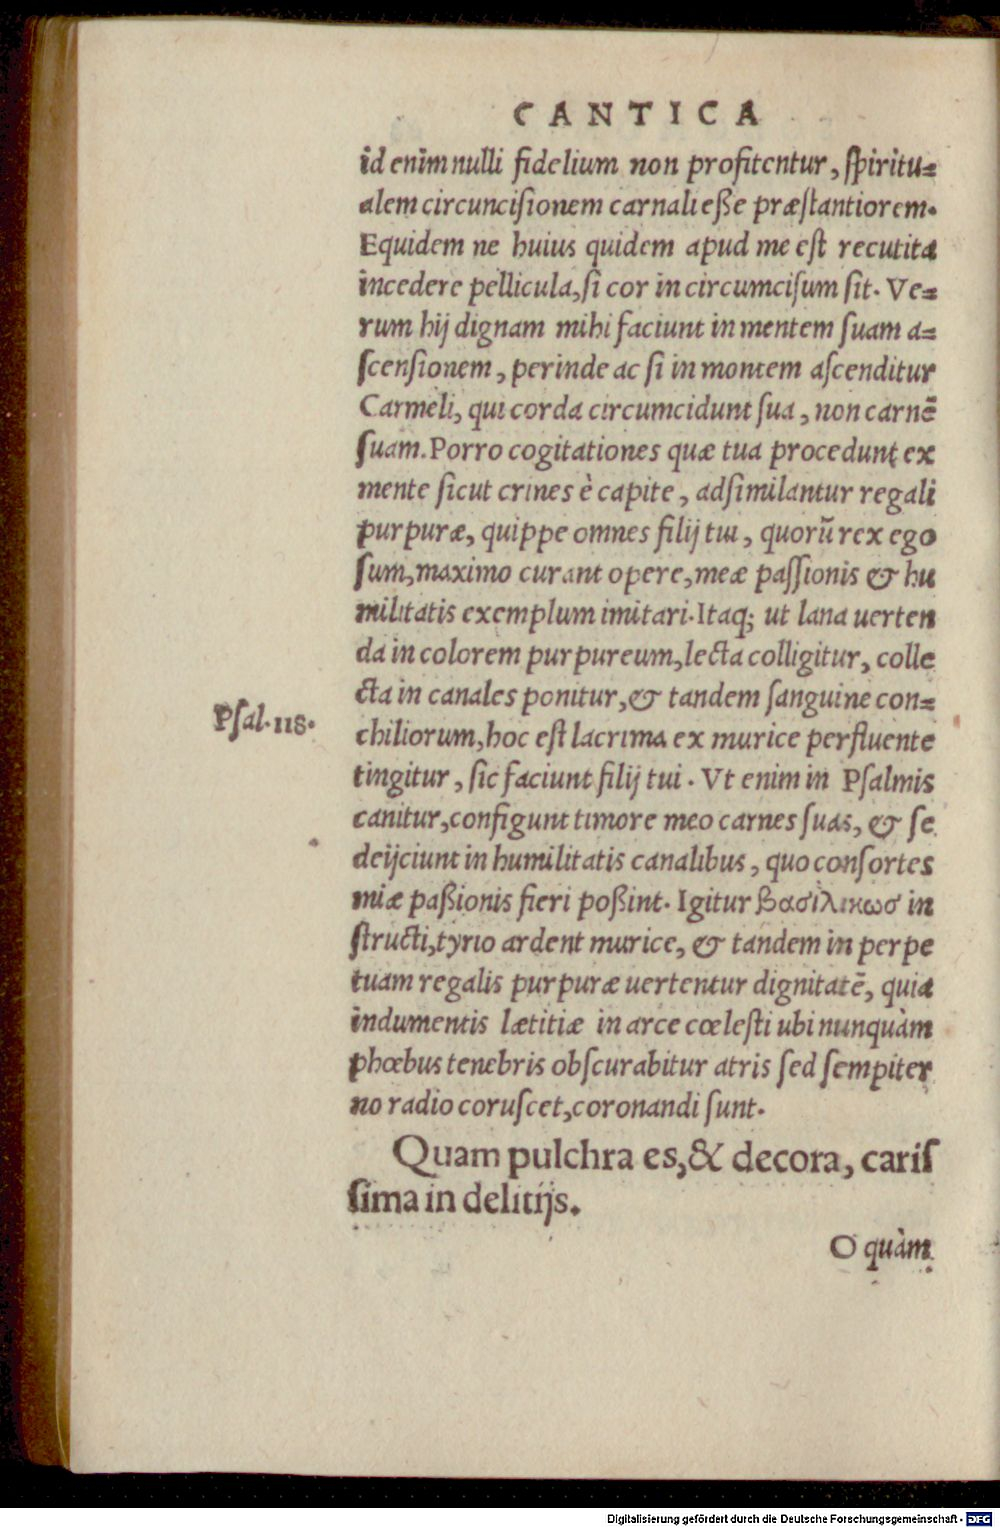 CANTICA
id enim nulli fidelium non profitentur, ſpiritu=
alem circunciſionem carnali eße præſtantiorem.
Equidem ne huius quidem apud me eſt recutita
incedere pellicula, ſi cor in circumciſum ſit. Ve=
rum hij dignam mihi faciunt in mentem ſuam a=
ſcenſionem, perinde ac ſi in montem aſcenditur
Carmèli, qui corda circumcidunt ſua, non carnē
ſuam. Porro cogitationes quæ tua procedunt ex
mente ſicut crines è capite, adſimilantur regali
purpuræ, quippe omnes filij tui, quorū rex ego
ſum, maximo curant opere, meæ paſſionis & hu
militatis exemplum imitari. Itaq; ut lana uerten
da in colorem purpureum, lecta colligitur, colle
cta in canales ponitur, & tandem ſanguine con=
Pſal. 118.
chiliorum, hoc eſt lacrima ex murice perfluente
tingitur, ſic faciunt filij tui. Vt enim in Pſalmis
canitur, configunt timore meo carnes ſuas, & ſe
deijciunt in humilitatis canalibus, quo conſortes
miæ paßionis fieri poßint. Igitur βασιλικωσ in
ſtructi, tyrio ardent murice, & tandem in perpe
tuam regalis purpuræ uertentur dignitatē, quia
indumentis lætitiæ in arce cœleſti ubi nunquàm
phœbus tenebris obſcurabitur atris ſed ſempiter
no radio coruſcet, coronandi ſunt.
Quam pulchra es, & decora, cariſ
ſima in delitijs.
O quàm
Digitalisierung gefördert durch die Deutsche Forschungsgemeinschaft - DFG